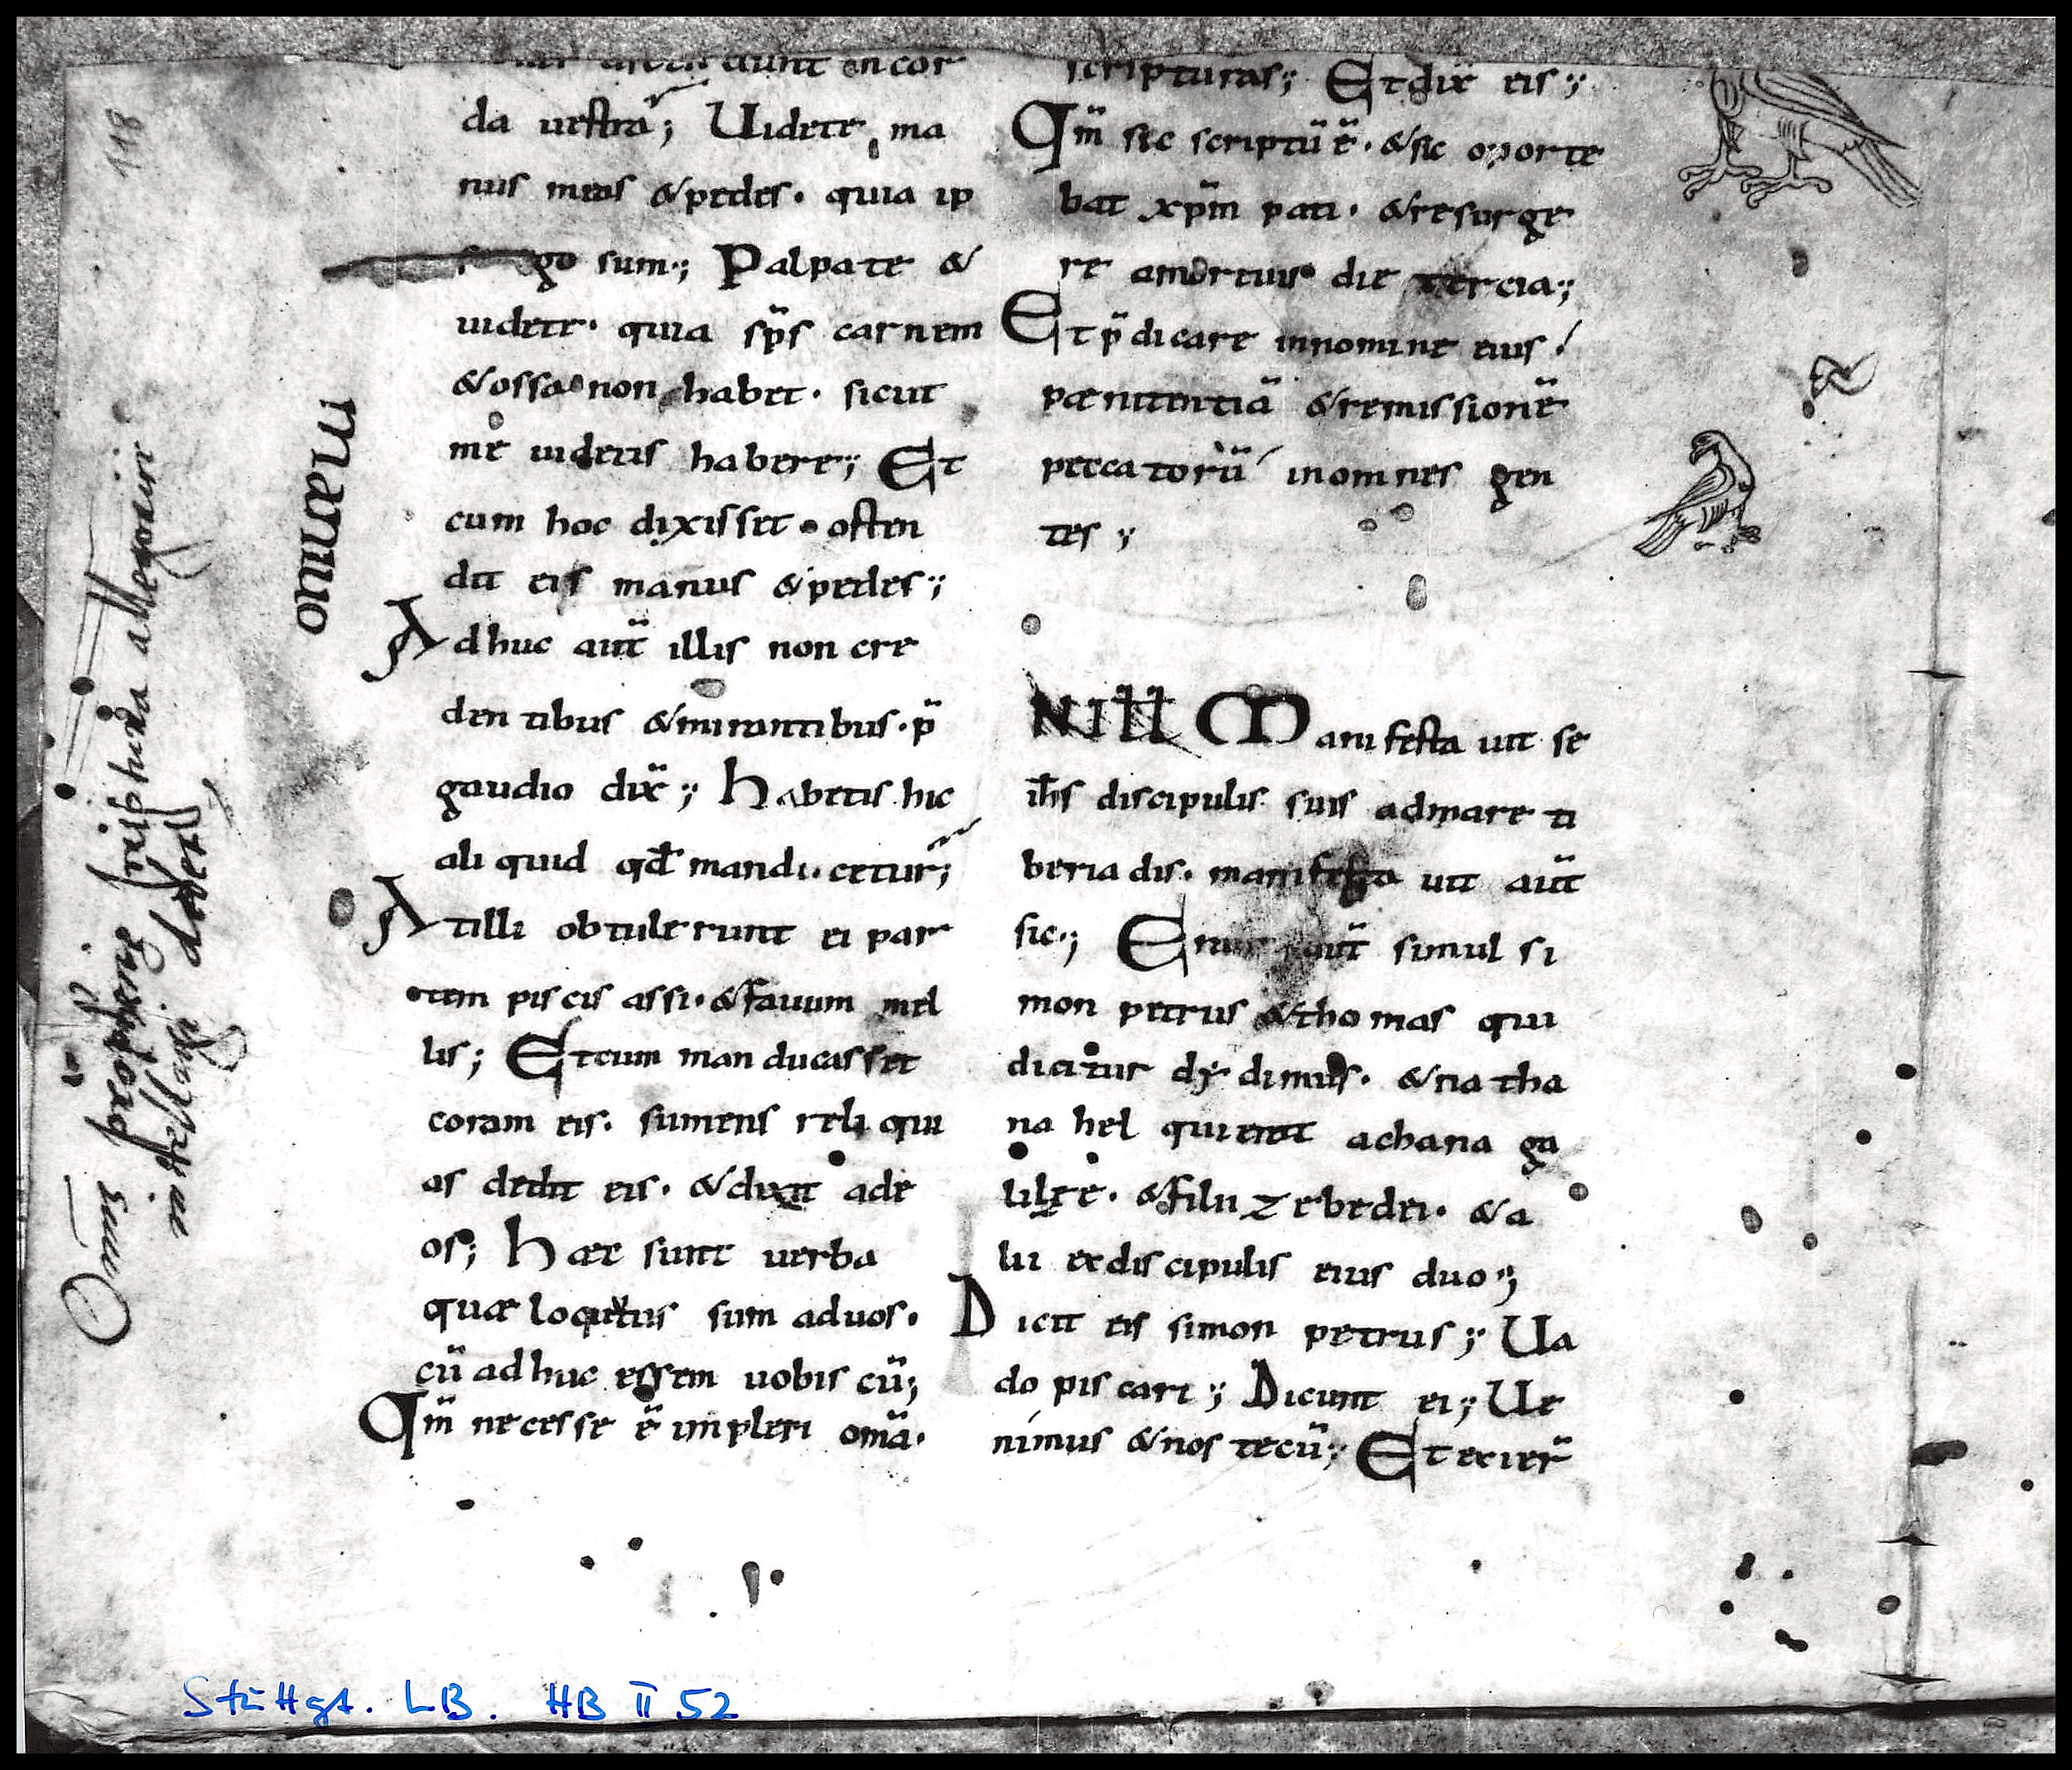 cor
da uestra; Uidete ma
nus meas & pedes. quia ip
go sum; Palpate &
uidete. quia sp̄s carnem
& ossa non habet. sicut
me uidetis habere; Et
cum hoc dixisset. osten
dit eis manus & pedes;
Adhuc aut̄ illis non cre
dentibus & mirantibus. p̄
gaudio dix̄; Habetis hic
aliquid qd̄ manducetur;
At illi obtulerunt ei par
tem piscis assi. & fauum mel
lis; Et cum manducasset
coram eis. sumens reliqui
as dedit eis. & dixit ad e
os; Haec sunt uerba
quae locutus sum ad uos.
cū adhuc essem uobis cū;
Qm̄ necesse ē impleri om̄a.
scripturas; Et dix̄ eis;
Qm̄ sic scriptū ē. & sic oporte
bat xp̄m pati. & resurge
re a mortuis die tercia;
Et p̄dicare in nomine eius
paenitentiā & remissionē
peccatorū in omnes gen
tes;
Manifestauit se
ih̄s discipulis suis ad mare ti
beriadis. manifestauit aut̄
sic; Erant aut̄ simul si
mon petrus & thomas qui
dicitur dydimus. & natha
nahel qui erat a chana ga
lilęe. & filii zebedei. & a
lii ex discipulis eius duo;
Dicit eis simon petrus; Ua
do piscari; Dicunt ei; Ue
nimus & nos tecū; Et exier̄
118
Stuttgt. LB. HB II 52